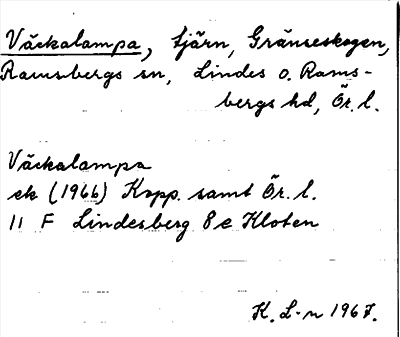 Väckalampa, tjärn, Gränseskogen,
Ramsbergs sn, Lindes o. Rams-
bergs hd, Ör. l.
Väckalampa
ek (1966) Kopp. samt Ör. l.
11 F Lindesberg 8 e Kloten
K. L-n 1967.